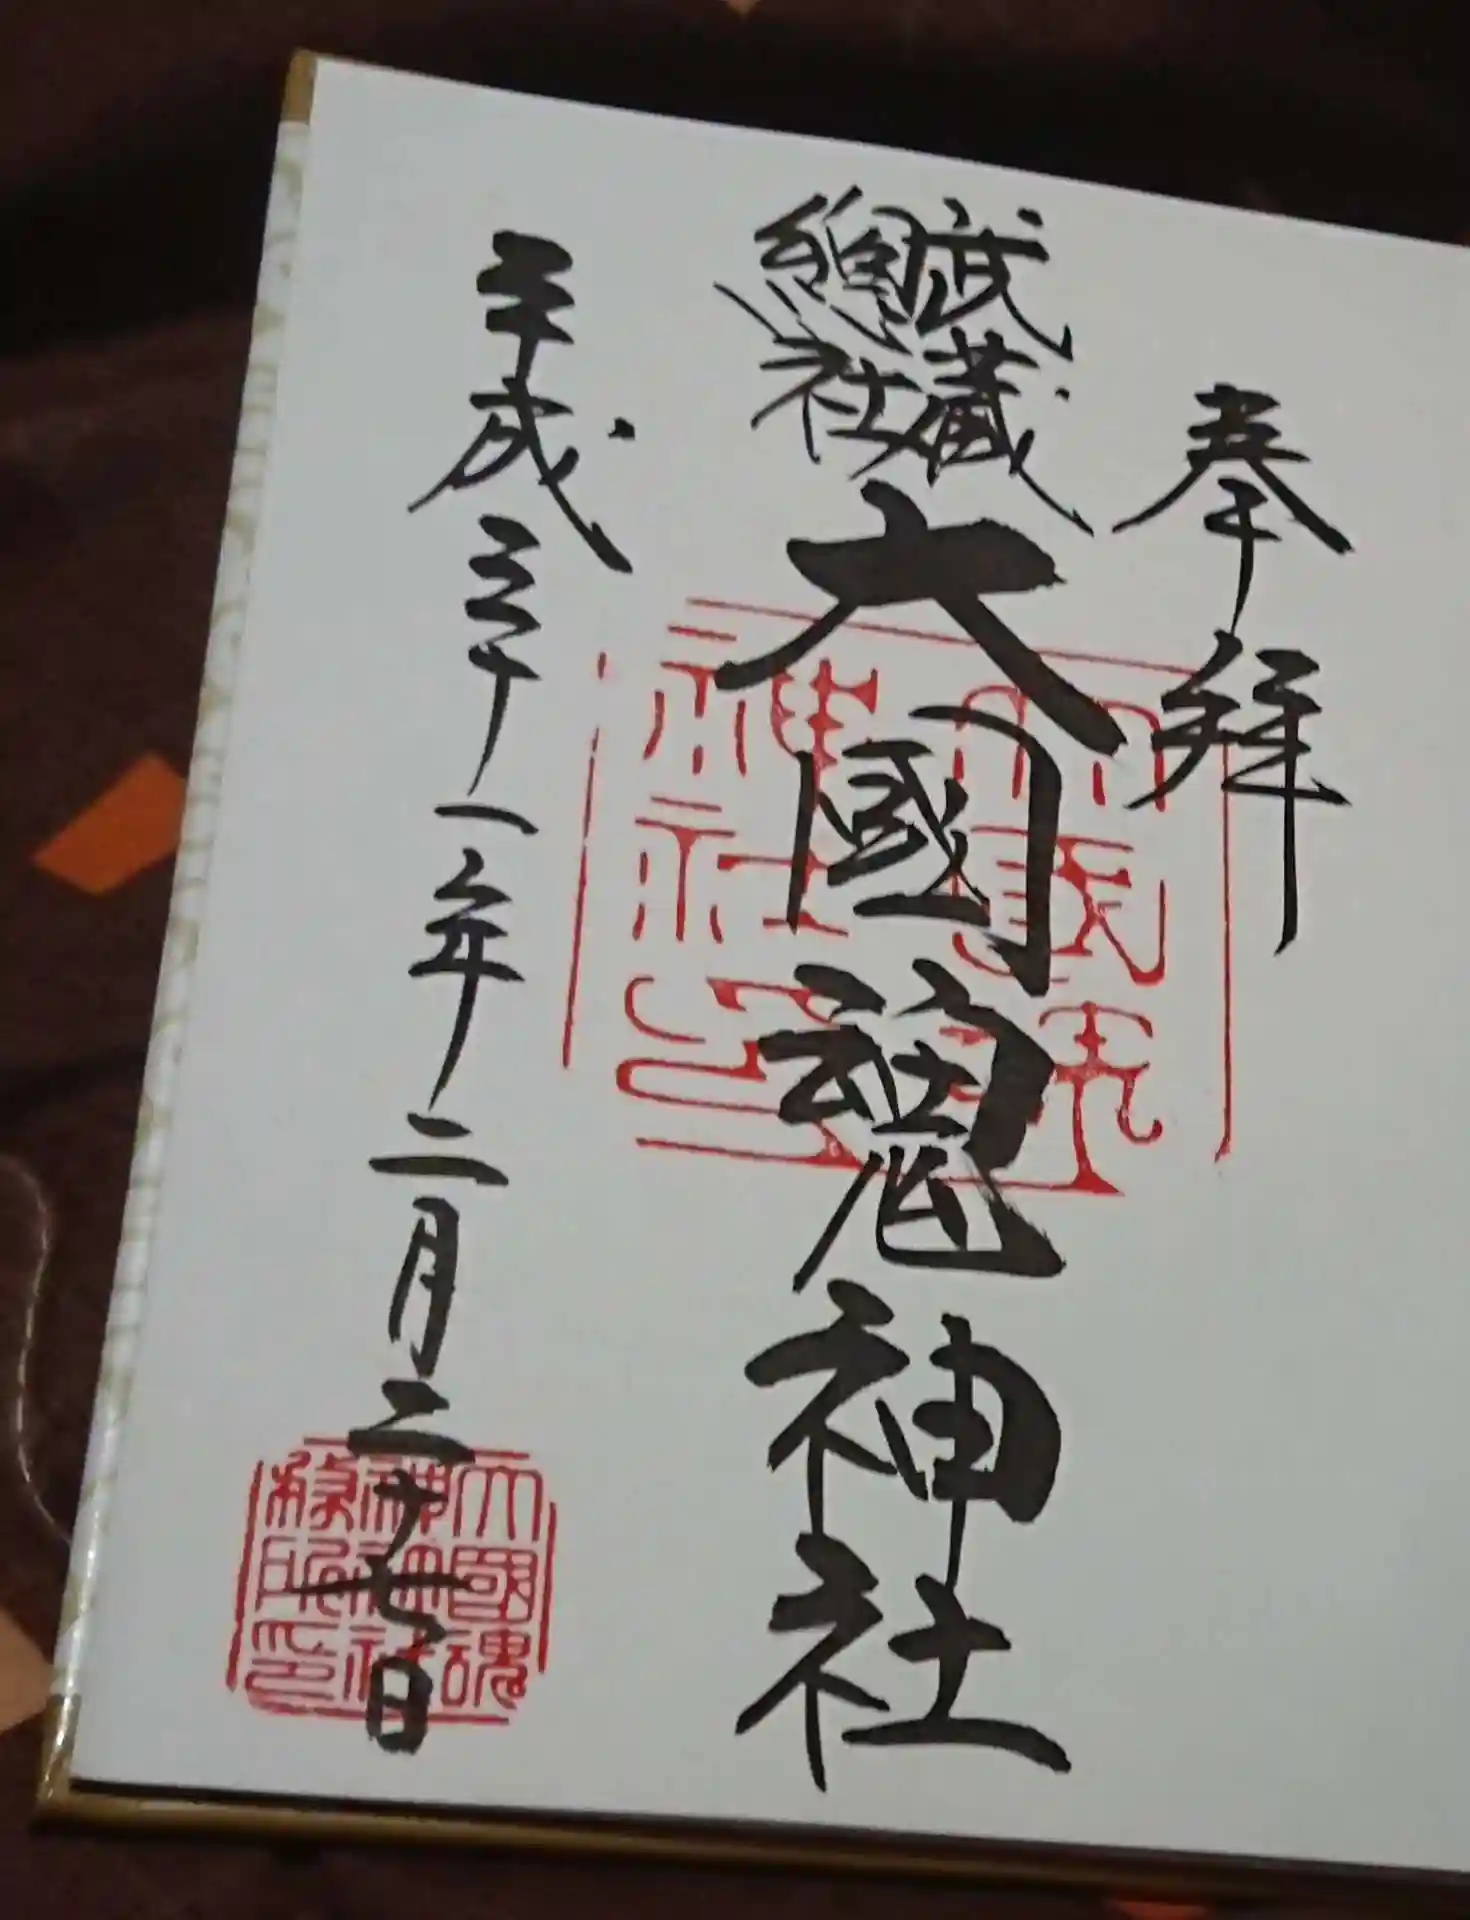 奉拝
武蔵
總社
大國魂神社
平成三十一年二月二十七日
大國魂
神社
印
大國魂
神社
務所印